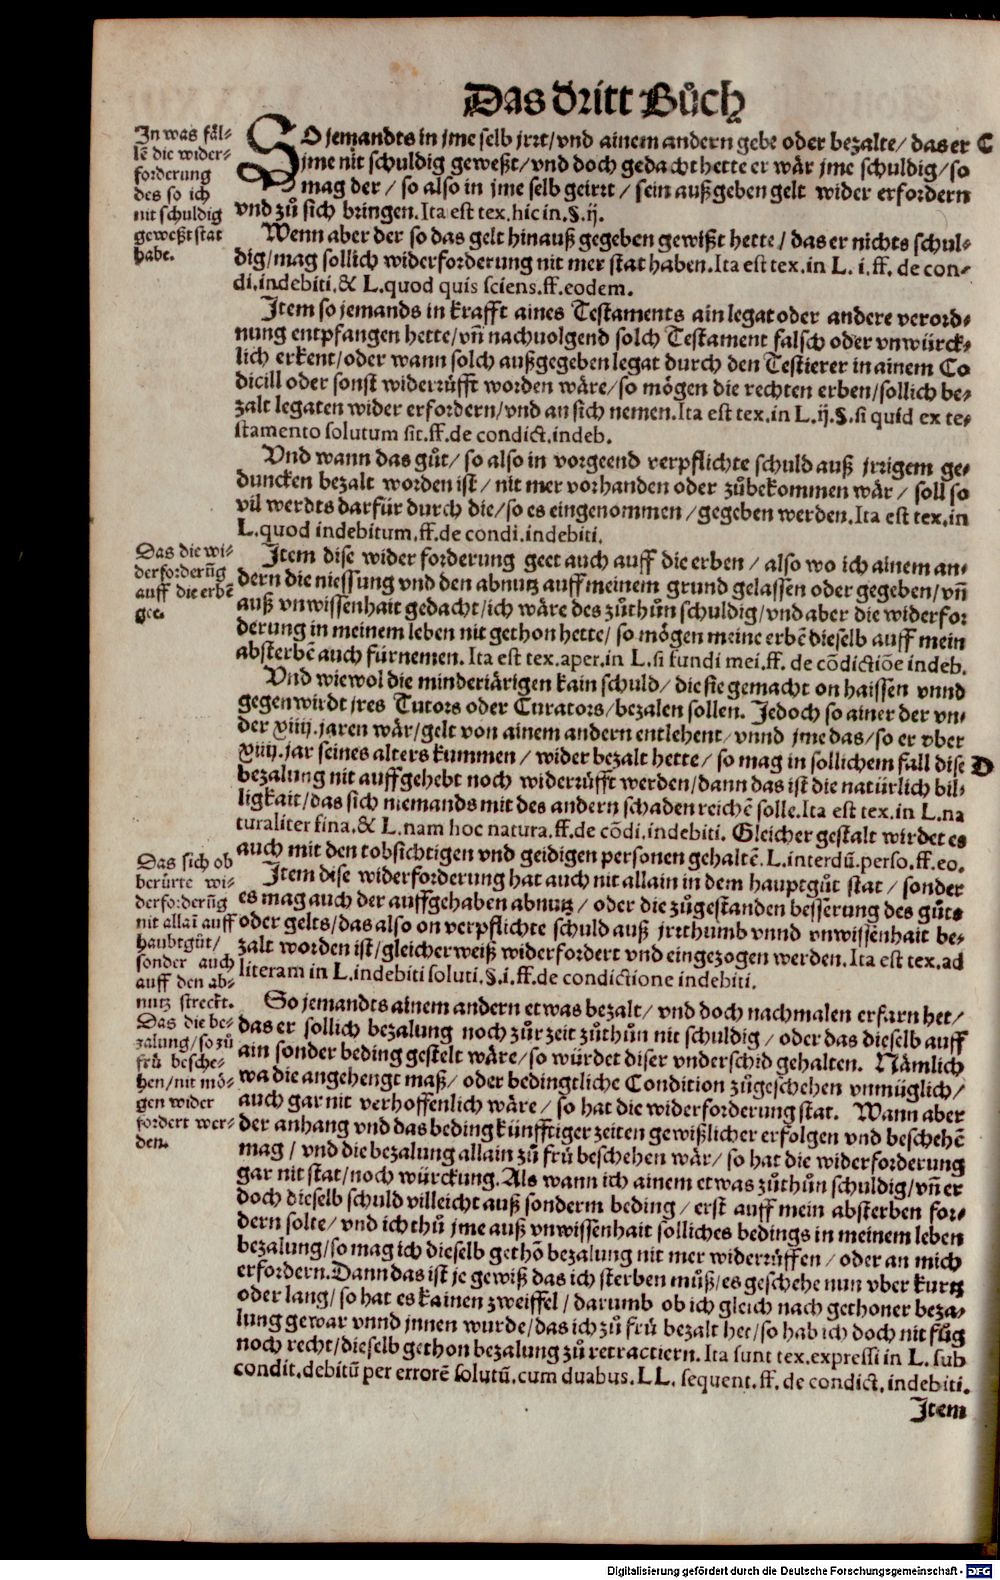 Das dritt Bůch
In was fäl-
lē die wider-
forderung
des so ich
nit schuldig
geweßt stat
habe.
SO jemandts in jme selb jrrt/vnd ainem andern gebe oder bezalte/ das er
jme nit schuldig geweßt/ vnd doch gedacht hette er wär jme schuldig/ so
mag der / so also in jme selb geirrt / sein außgeben gelt wider erfordern
vnd zů sich bringen. Ita est tex. hic in. §. ij.
C
Wenn aber der so das gelt hinauß gegeben gewißt hette / das er nichts schul-
dig/ mag sollich widerforderung nit mer stat haben. Ita est tex. in L. i. ff. de con-
di. indebiti. & L. quod quis sciens. ff. eodem.
Item so jemands in krafft aines Testaments ain legat oder andere verord-
nung entpfangen hette/ vñ nachuolgend solch Testament falsch oder vnwürck-
lich erkent/ oder wann solch außgegeben legat durch den Testierer in ainem Co
dicill oder sonst widerrüfft worden wäre/ so mögen die rechten erben/ sollich be-
zalt legaten wider erfordern/ vnd an sich nemen. Ita est tex. in L. ij. §. si quid ex te-
stamento solutum sit. ff. de condict. indeb.
Vnd wann das gůt/ so also in vorgeend verpflichte schuld auß jrrigem ge-
duncken bezalt worden ist / nit mer vorhanden oder zůbekommen wär / soll so
vil werdts darfür durch die/ so es eingenommen / gegeben werden. Ita est tex. in
L. quod indebitum. ff. de condi. indebiti.
Das die wi-
derforderũg
auff die erbē
gee.
Item dise wider forderung geet auch auff die erben / also wo ich ainem an-
dern die niessung vnd den abnutz auff meinem grund gelassen oder gegeben/ vñ
auß vnwissenhait gedacht/ ich wäre des zůthůn schuldig/ vnd aber die widerfor
derung in meinem leben nit gethon hette/ so mögen meine erbē dieselb auff mein
absterbē auch fürnemen. Ita est tex. aper. in L. si fundi mei. ff. de cõdictiõe indeb.
Vnd wiewol die minderjärigen kain schuld/ die sie gemacht on haissen vnnd
gegenwirdt jres Tutors oder Curators/ bezalen sollen. Jedoch so ainer der vn-
der xiiij. jaren wär/ gelt von ainem andern entlehent/ vnnd jme das/ so er vber
xiiij. jar seines alters kummen / wider bezalt hette/ so mag in sollichem fall dise
bezalung nit auffgehebt noch widerüfft werden/ dann das ist die natürlich bil-
ligkait/ das sich niemands mit des andern schaden reichē solle. Ita est tex. in L. na
turaliter fina. & L. nam hoc natura. ff. de cõdi. indebiti. Gleicher gestalt wirdet es
auch mit den tobsichtigen vnd geidigen personen gehaltē. L. interdũ. perso. ff. eo.
D
Das sich ob
berürte wi-
derforderũg
nit allaĩ auff
haubtgůt/
sonder auch
auff den ab-
nutz streckt.
Item dise widerforderung hat auch nit allain in dem hauptgůt stat / sonder
es mag auch der auffgehaben abnutz / oder die zůgestanden besserung des gůts
oder gelts/ das also on verpflichte schuld auß jrrthumb vnnd vnwissenhait be-
zalt worden ist/ gleicher weiß widerfordert vnd eingezogen werden. Ita est tex. ad
literam in L. indebiti soluti. §. i. ff. de condictione indebiti.
Das die be-
zalung/ so zů
frü besche-
hen/ nit mö-
gen wider
fordert wer-
den.
So jemandts ainem andern etwas bezalt/ vnd doch nachmalen erfarn het/
das er sollich bezalung noch zůr zeit zůthůn nit schuldig / oder das dieselb auff
ain sonder beding gestelt wäre/ so würdet diser vnderschid gehalten. Nämlich
wa die angehengt maß/ oder bedingtliche Condition zůgeschehen vnmüglich/
auch gar nit verhoffenlich wäre / so hat die widerforderung stat. Wann aber
der anhang vnd das beding künfftiger zeiten gewißlicher erfolgen vnd beschehē
mag / vnd die bezalung allain zů frü beschehen wär/ so hat die widerforderung
gar nit stat/ noch würckung. Als wann ich ainem etwas zůthůn schuldig/ vñ er
doch dieselb schuld villeicht auß sonderm beding / erst auff mein absterben for-
dern solte/ vnd ich thů jme auß vnwissenhait solliches bedings in meinem leben
bezalung/ so mag ich dieselb gethõ bezalung nit mer widerrüffen / oder an mich
erfordern. Dann das ist je gewiß das ich sterben můß/ es geschehe nun vber kurtz
oder lang/ so hat es kainen zweiffel / darumb ob ich gleich nach gethoner beza-
lung gewar vnnd jnnen wurde/ das ich zů frü bezalt het/ so hab ich doch nit fůg
noch recht/ dieselb gethon bezalung zů retractiern. Ita sunt tex. expressi in L. sub
condit. debitũ per errorē solutũ. cum duabus. LL. sequent. ff. de condict. indebiti.
Item
Digitalisierung gefördert durch die Deutsche Forschungsgemeinschaft - DFG